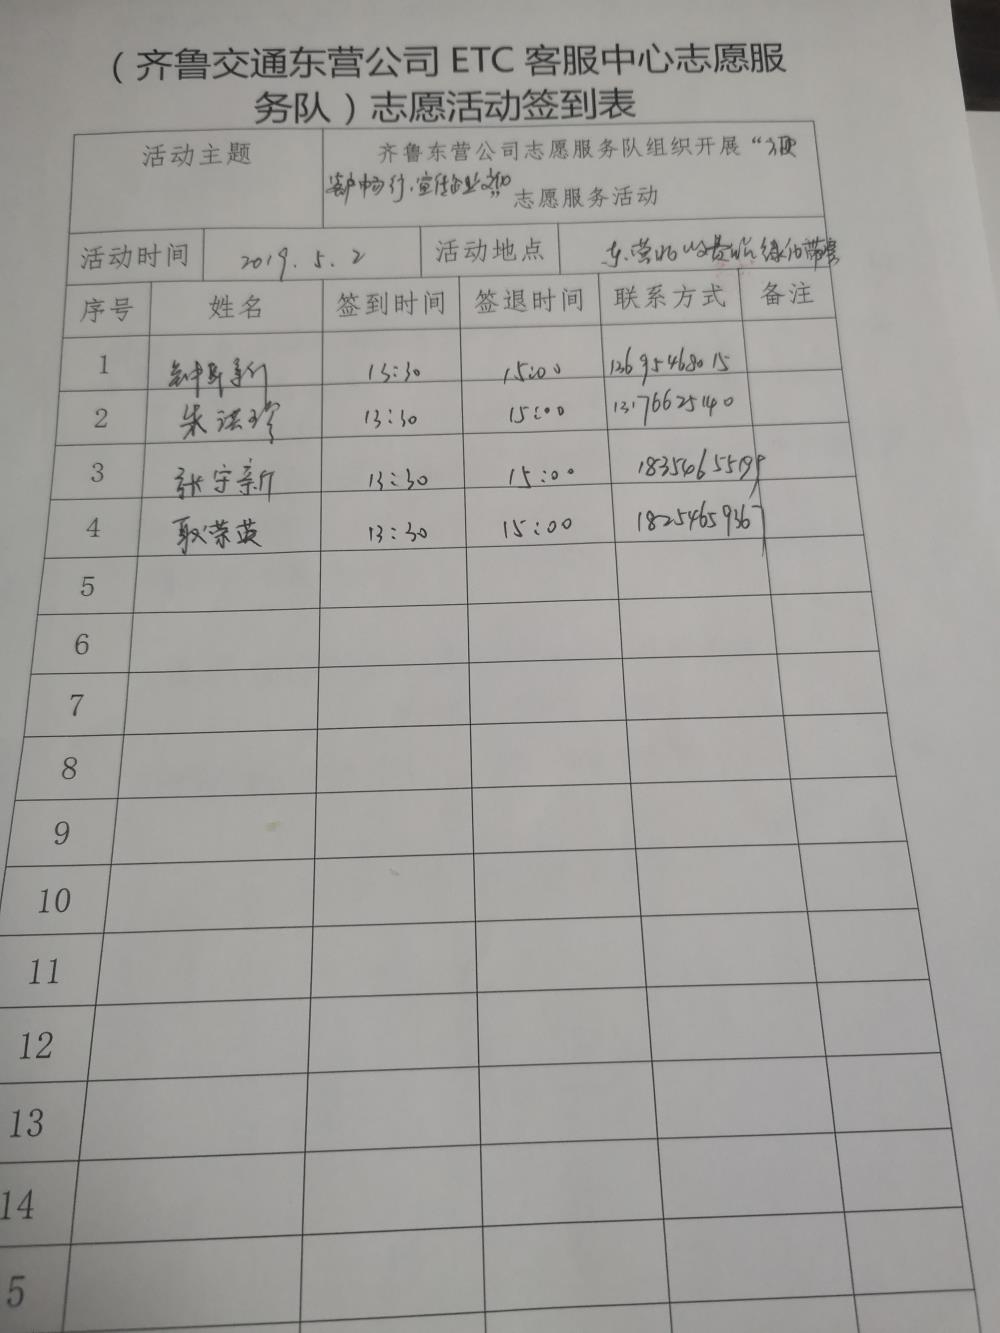 （齐鲁交通东营公司 ETC 客服中心志愿服
务队）志愿活动签到表
活动主题 齐鲁东营公司志愿服务队组织开展“方便
客户畅行，宣传企业文化” 志愿服务活动
活动时间 2019.5.2 活动地点 东营
序号 姓名 签到时间 签退时间 联系方式 备注
1 13:30 15:00 13695468015
2 朱洪珍 13:30 15:00 13176625140
3 张宇新 13:30 15:00 18354655199
4 耿荣英 13:30 15:00 18254659367
5
6
7
8
9
10
11
12
13
14
5